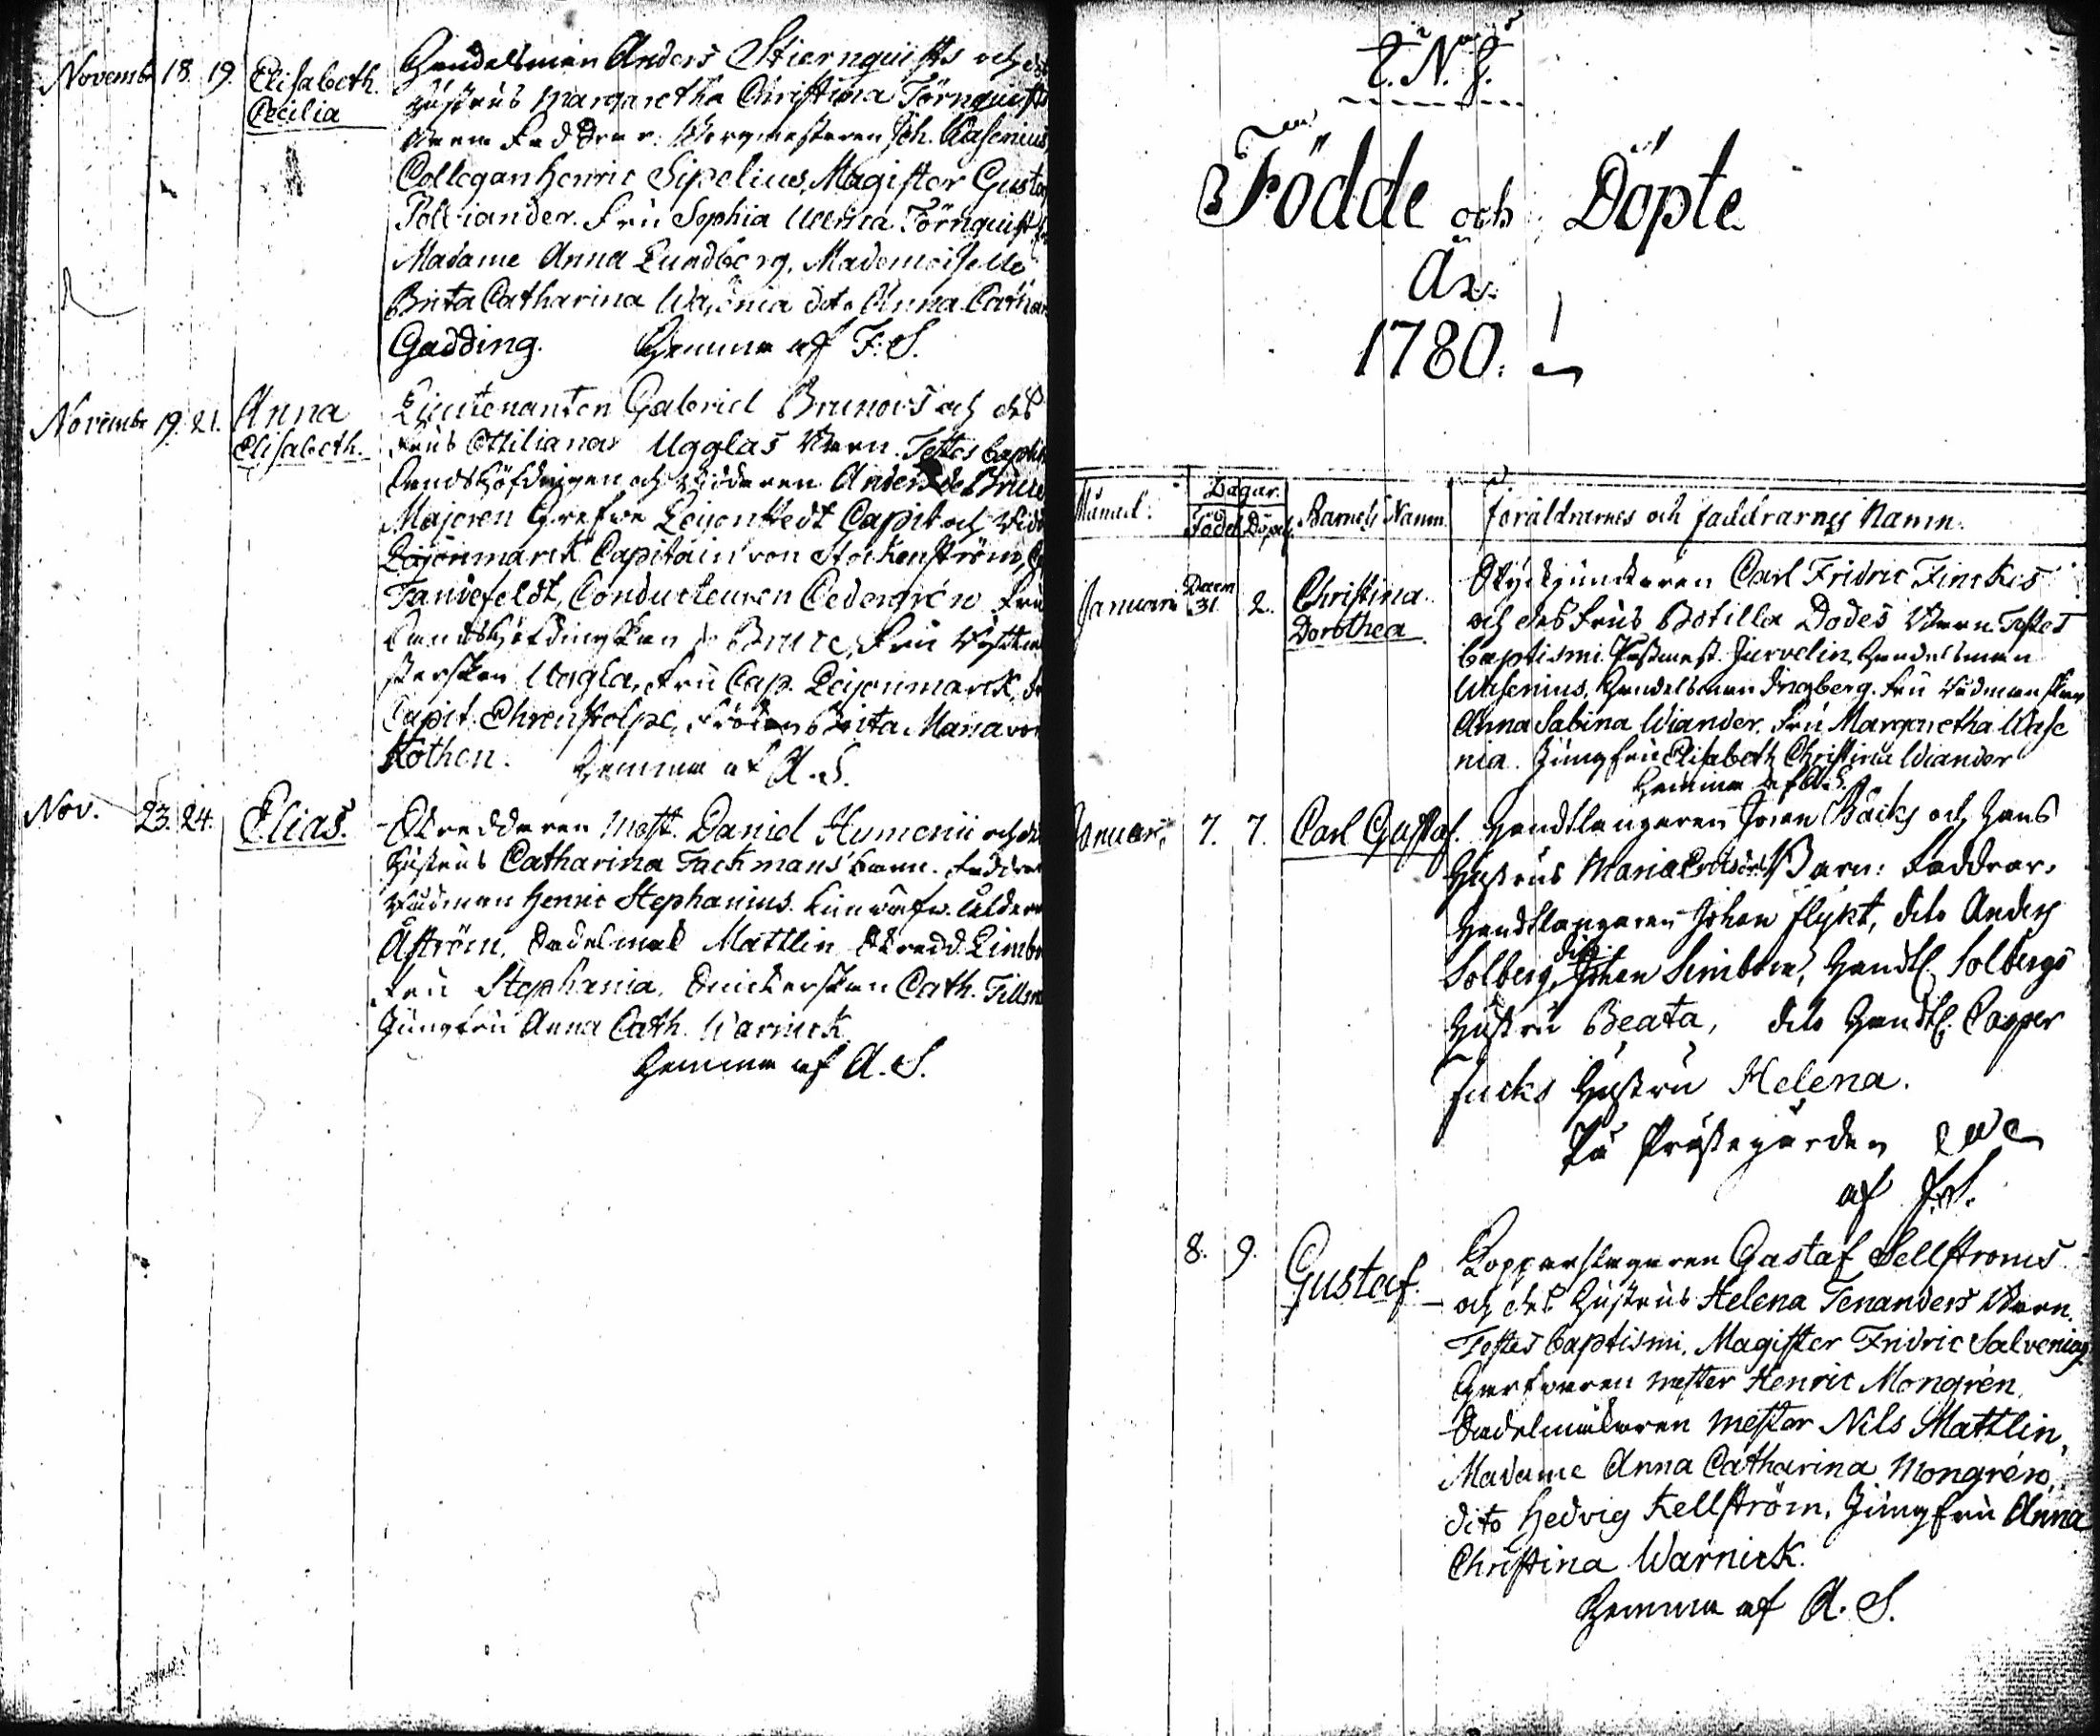 Novembr 18. 19. Elisabeth Cecilia
Handelsman Anders Stiernquists och des
hustrus Margaretha Christina Törnquists
Barn Faddrar: Borgmästaren Joh. Wasenius,
Collegan Henric Sipelius, Magister Gustaf
Polviander. Fru Sophia Ulrica Törnquist
Madame Anna Lundberg, Mademoiselle
Brita Catharina Wasenia dito Anna Cathar
Gadding. Hemma af F. S.
Novembr 19. 21. Anna Elisabeth.
Lieutenanten Gabriel Brunovs och des
Frus Ottilianas Ugglas Barn. Testes bapti
Landshöfdingen och Riddaren Anders de Bruce
Majoren Grefve Leijonstedt Capit och Ridd
Leijonmarck Capitain von Stockenström,
Tandefeldt, Conducteuren Cedergrén Fru
Landshöfdingskan de Bruce, Fru Ryttmä
sterskan Uggla, Fru Cap. Leijonmarck, d
Capit. Ehrenstolpe, Fröken Brita Maria von
Kothen. Hemma af A. S.
Nov. 23. 24. Elias.
Skreddaren Mäst. Daniel Humenii och des
hustrus Catharina Tackmans barn. Faddrar
Rådman Henric Stephanius
Åström, Sadelmak Mattlin Skredd. Limb
Fru Stephania, Snickerskan Cath. Tillm
Jungfru Anna Cath. Warnick
Hemma af A. S.
I. N. J.
Födde och Döpte
År.
1780.
Månad. Dagar. Barnets Namn. Föräldrarnes och faddrarnes Namn.
Född Döpt
Januari Decem 31. 2. Christina Dorothea
Styckjunkaren Carl Fridric Finckes
och des Frus Botilla Dodes Barn. Testes
baptismi. Postmest. Jurvelin, Handelsman
Wasenius, Handelsman Ingberg. Fru Rådmanskan
Anna Sabina Wiander, Fru Margaretha Wase
nia. Jungfru Elisabeth Christina Wiander
Hemma af A. S.
Januari. 7. 7. Carl Gustaf.
Handtlangaren Johan Bäcks och hans
Hustrus Maria Barn: Faddrar,
Handtlangaren Johan Flykt, dito Anders
Solberg, dito Johan Simbom, Handtl. Solbergs
Hustru Beata, dito Handtl. Casper
Fucks Hustru Helena.
På Prästegården
af F. S.
8. 9. Gustaf.
Kopparslagaren Gustaf Sellstroms
och des Hustrus Helena Tenanders Barn.
Testes baptismi, Magister Fridric Salvenius
Garfvaren mäster Henric Mongrén,
Sadelmakaren mäster Nils Mattlin,
Madame Anna Catharina Mongrén,
dito Hedvig Kellström, Jungfru Anna
Christina Warnick.
Hemma af A. S.